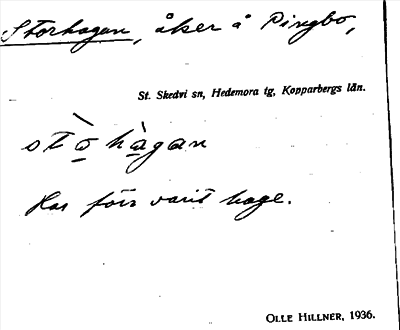 Storhagen, åker å Pingbo,
St. Skedvi sn, Hedemora tg, Kopparbergs län.
stò hàgan
Har förr varit hage.
OLLE HILLNER, 1936.